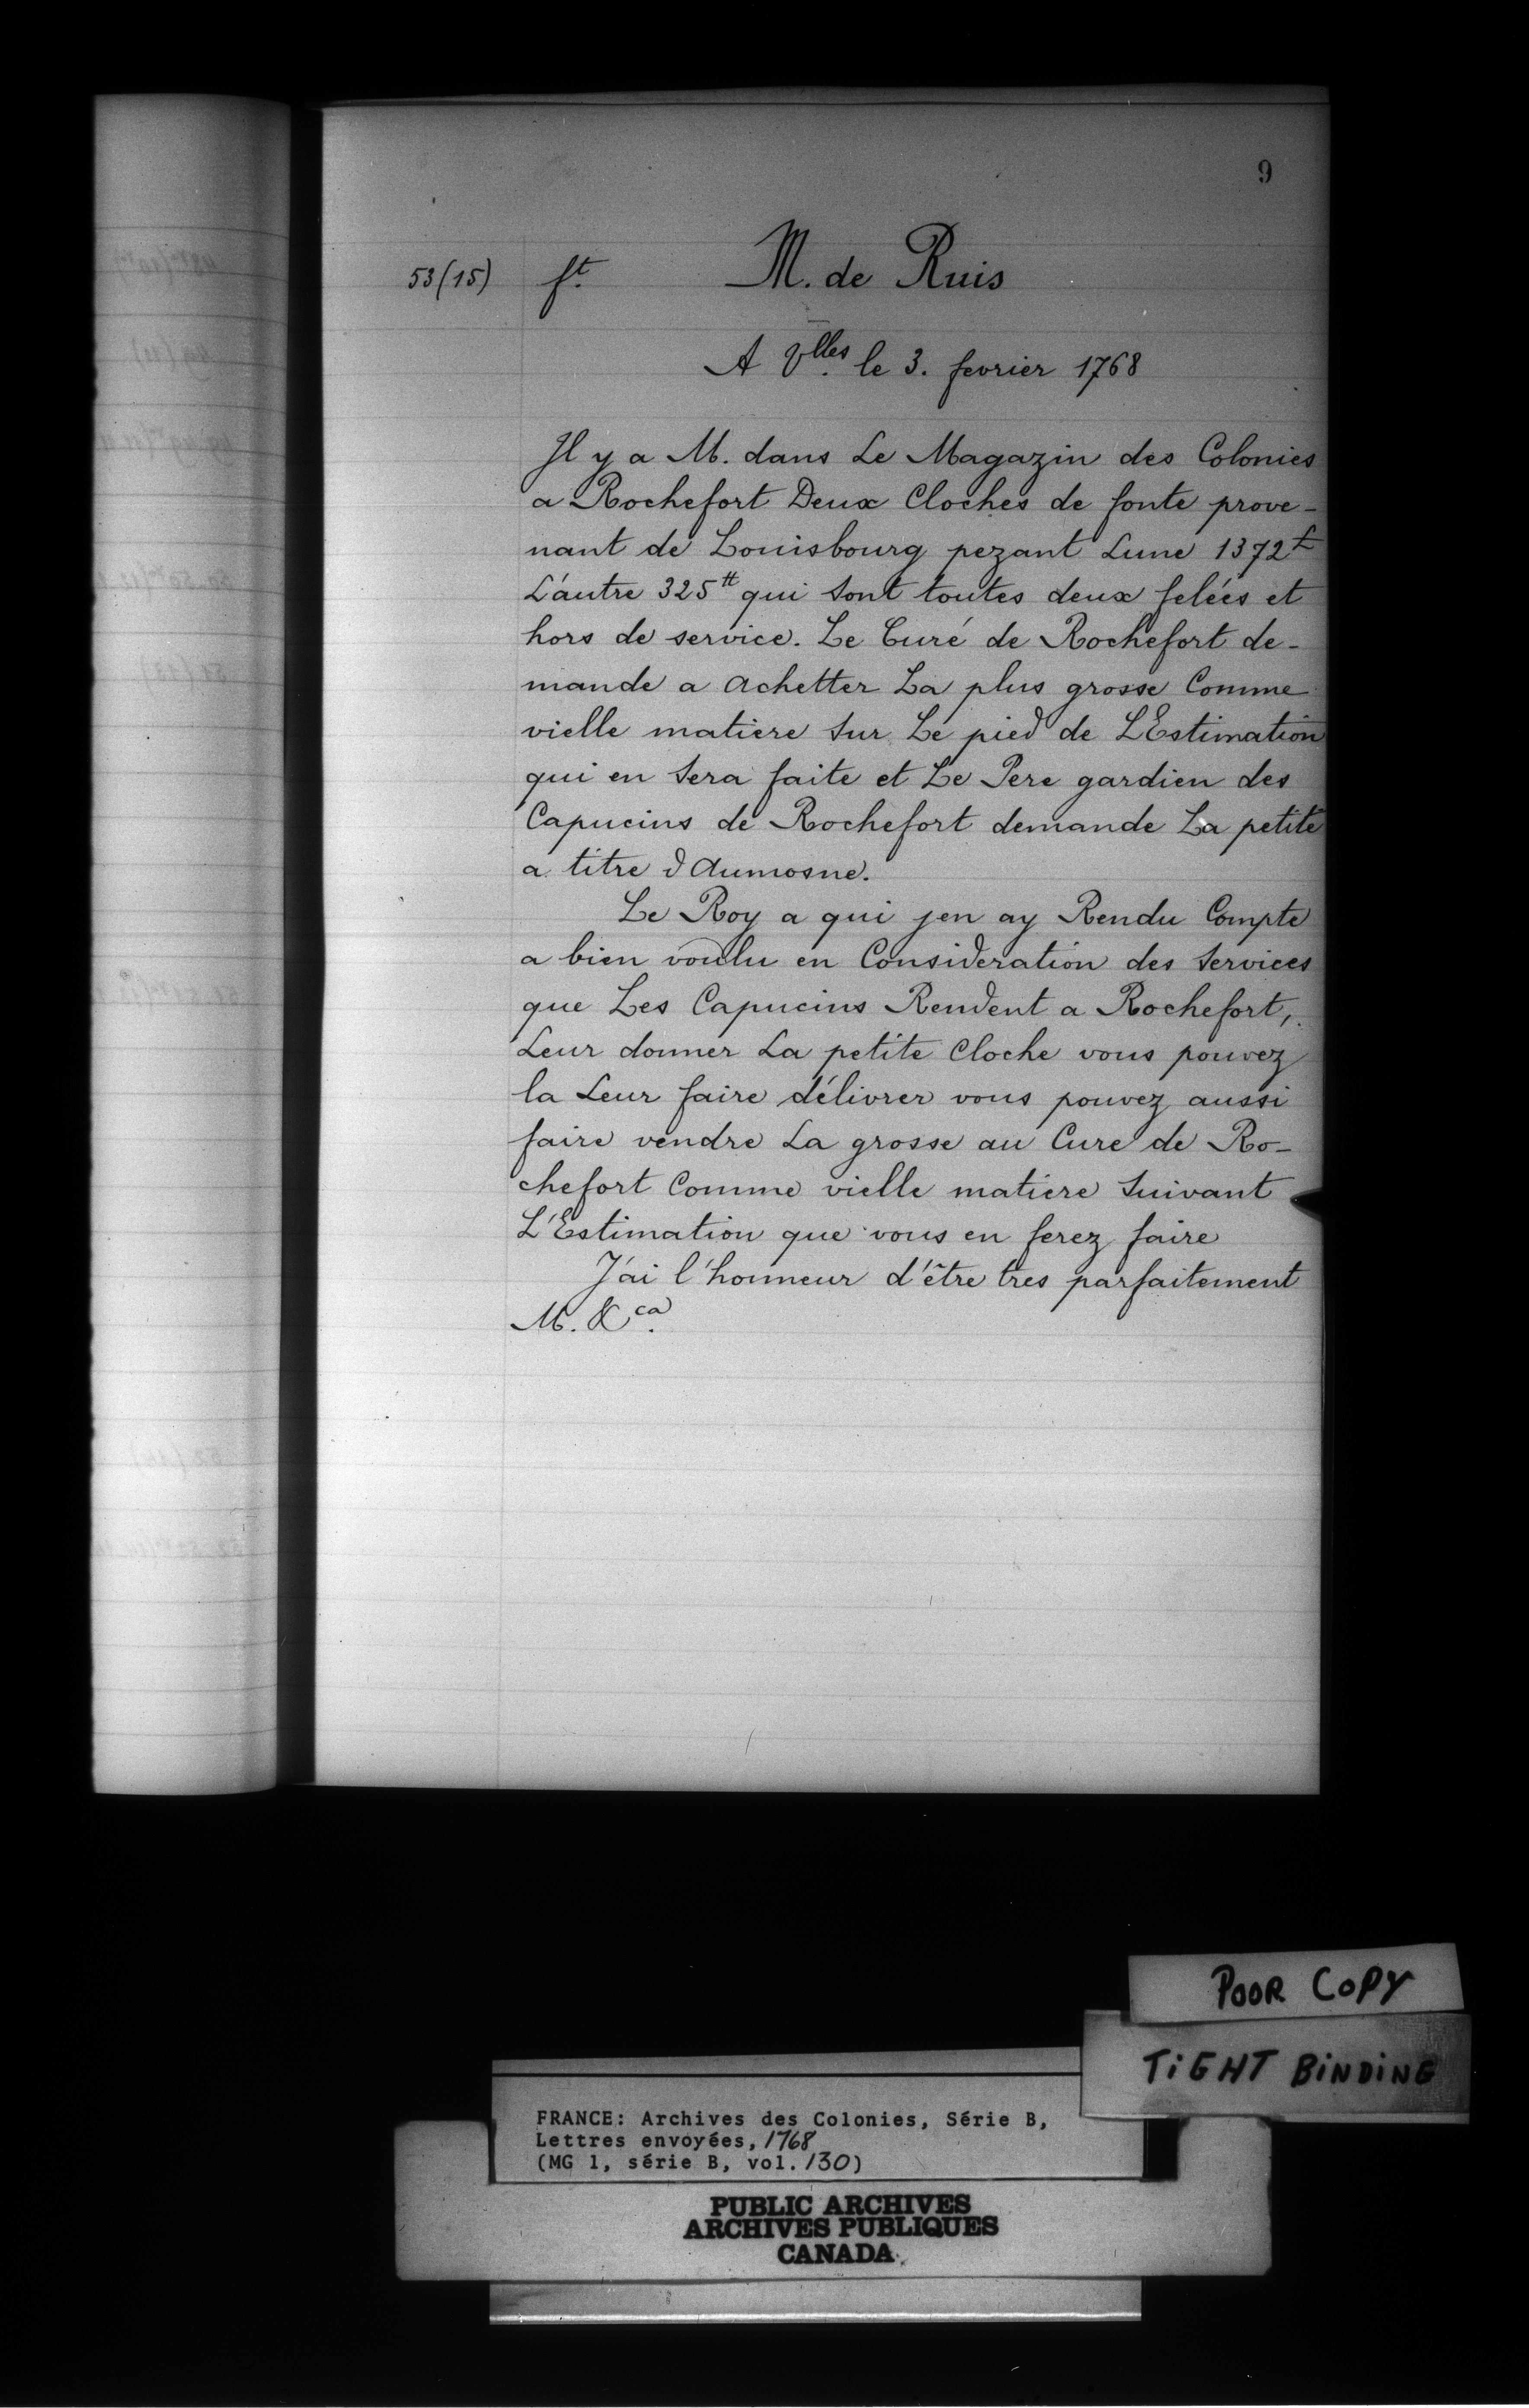 9
53(15) ft. M. de Ruis
A Vlles. le 3. fevrier 1768
Il y a M. dans Le Magazin des Colonies
a Rochefort Deux Cloches de fonte prove-
nant de Louisbourg pezant Lune 1372 tt
L'autre 325 tt qui sont toutes deux felées et
hors de service. Le Curé de Rochefort de-
mande a achetter La plus grosse Comme
vielle matiere sur Le pied de L'Estimation
qui en sera faite et Le Pere gardien des
Capucins de Rochefort demande La petite
a titre d'aumosne.
Le Roy a qui jen ay Rendu Compte
a bien voulu en Consideration des services
que Les Capucins Rendent a Rochefort,
Leur donner La petite Cloche vous pouvez
la Leur faire délivrer vous pouvez aussi
faire vendre La grosse au Cure de Ro-
chefort Comme vielle matiere suivant
L'Estimation que vous en ferez faire
J'ai l'honneur d'être tres parfaitement
M. &ca.
POOR COPY
TIGHT BINDING
FRANCE: Archives des Colonies, Série B,
Lettres envoyées, 1768
(MG 1, série B, vol. 130)
PUBLIC ARCHIVES
ARCHIVES PUBLIQUES
CANADA